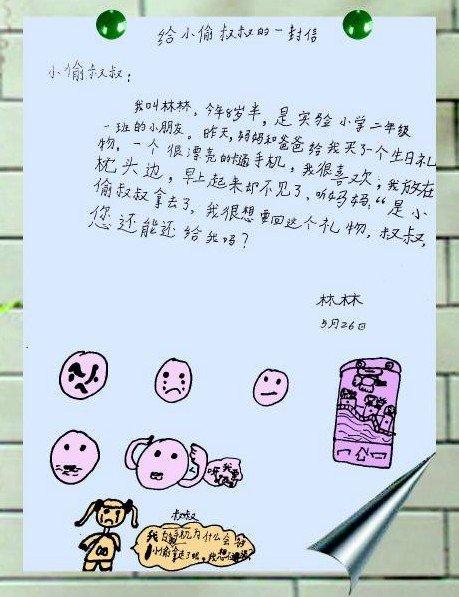 给小偷叔叔的一封信
小偷叔叔：
我叫林林，今年8岁半，是实验小学二年级
一班的小朋友。昨天，妈妈和爸爸给我买了一个生日礼
物，一个很漂亮的卡通手机，我很喜欢，我放在
枕头边，早上起来却不见了，听妈妈："是小
偷叔叔拿去了，我很想要回这个礼物，叔叔，
您还能还给我吗？
林林
5月26日
叔叔
我 手机为什么会
小偷拿走了呢，我想